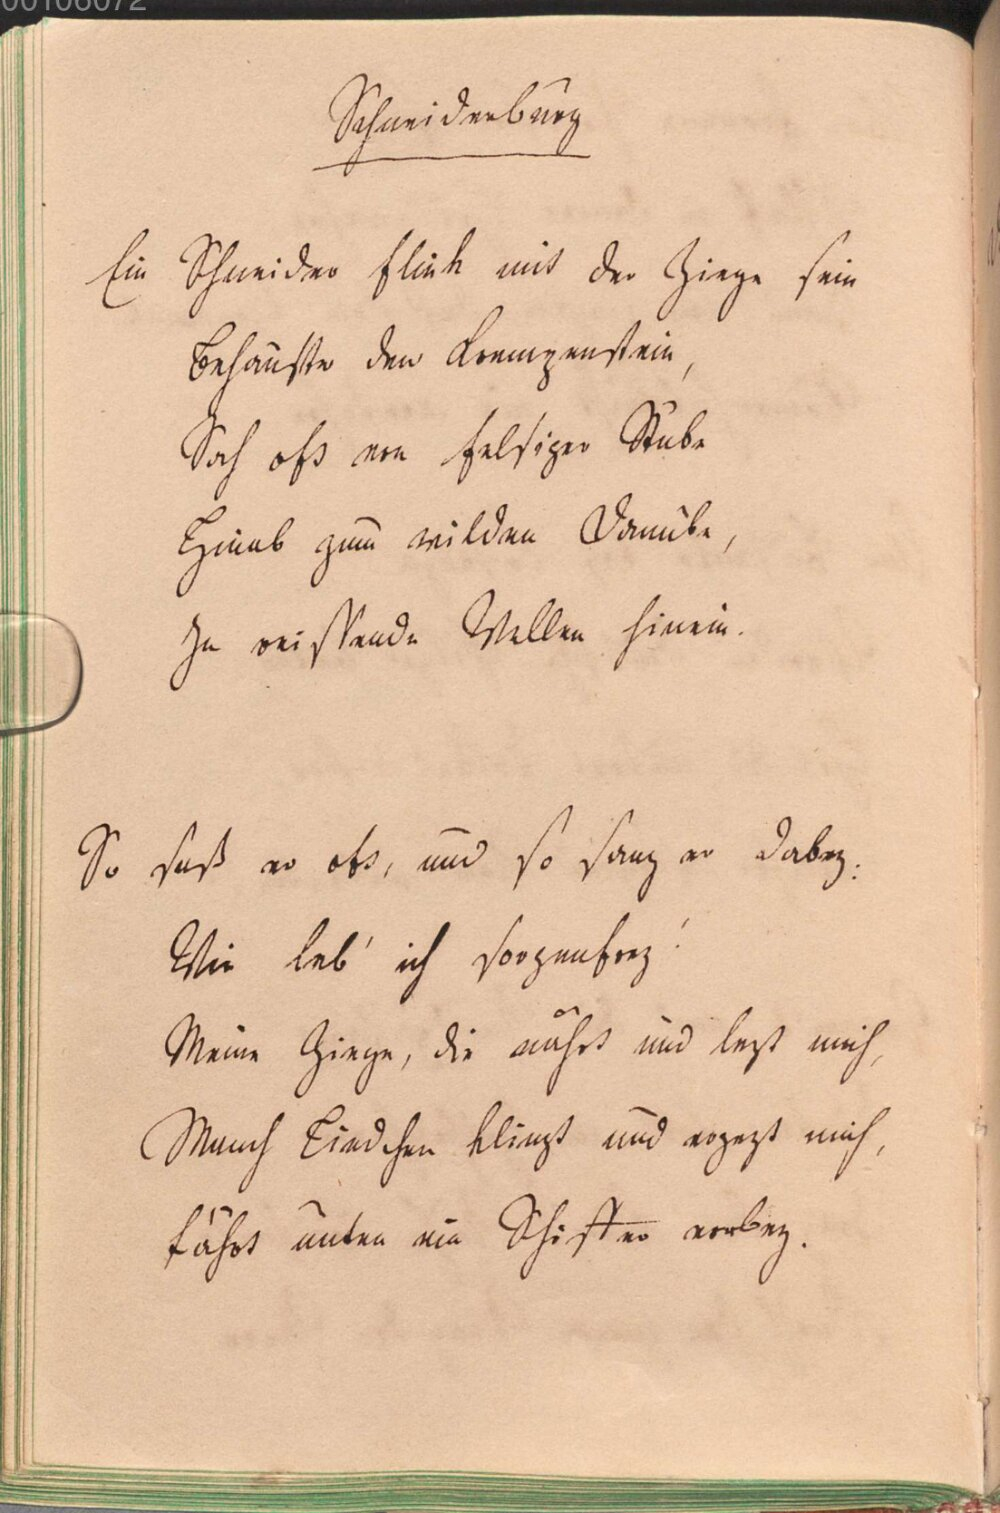 00106072
Schneiderburg
Ein Schneider flink mit der Ziege sein
Behauste den Krempenstein,
Sah oft von felsiger Stube
Hinab zum wilden Danube,
In reissende Wellen hinein.
So saß er oft, und so sang er dabey:
Wie leb' ich sorgenfrey!
Meine Ziege, die nährt und lezt mich,
Manch Liedchen klingt und ergezt mich,
Fährt unten ein Schiffer vorbey.